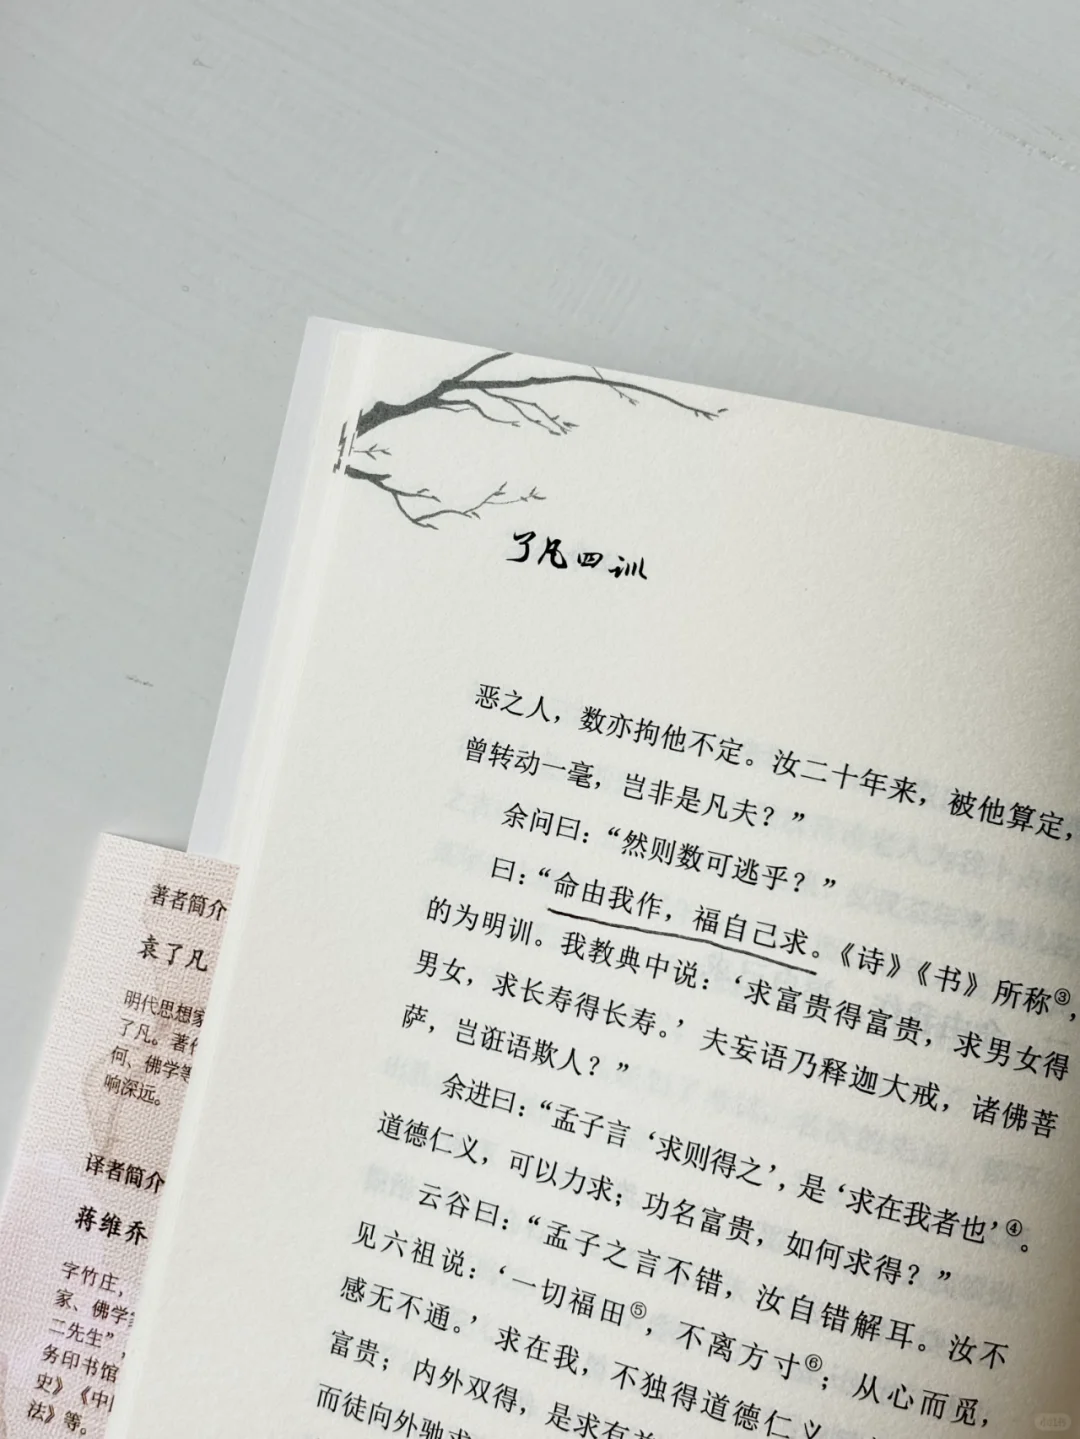 了凡四训
恶之人，数亦拘他不定。汝二十年来，被他算定，
曾转动一毫，岂非是凡夫？”
余问曰：“然则数可逃乎？”
曰：“命由我作，福自己求。《诗》《书》所称③，
的为明训。我教典中说：‘求富贵得富贵，求男女得
男女，求长寿得长寿。’夫妄语乃释迦大戒，诸佛菩
萨，岂诳语欺人？”
余进曰：“孟子言‘求则得之’，是‘求在我者也’④。
道德仁义，可以力求；功名富贵，如何求得？”
云谷曰：“孟子之言不错，汝自错解耳。汝不
见六祖说：‘一切福田⑤，不离方寸⑥；从心而觅，
感无不通。’求在我，不独得道德仁义
富贵；内外双得，是求有
而徒向外驰求
著者简介
袁了凡
明代思想家
了凡。著
何、佛学等
响深远。
译者简介
蒋维乔
字竹庄，
家、佛学
二先生”，
务印书馆
史》《中
法》等。